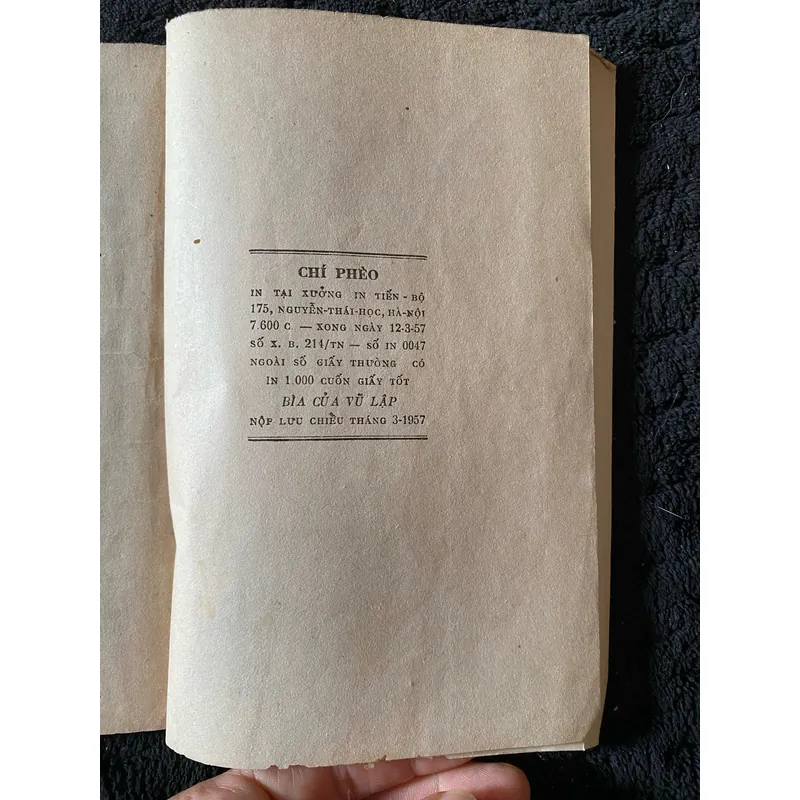 CHÍ PHÈO
IN TẠI XƯỞNG IN TIẾN-BỘ
175, NGUYỄN-THÁI-HỌC, HÀ-NỘI
7.600 C. — XONG NGÀY 12-3-57
SỐ X. B. 214/TN — SỐ IN 0047
NGOÀI SỐ GIẤY THƯỜNG CÓ
IN 1.000 CUỐN GIẤY TỐT
BÌA CỦA VŨ LẬP
NỘP LƯU CHIỂU THÁNG 3-1957